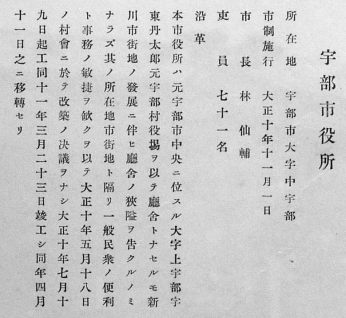 宇部市役所
所在地　宇部市大字中宇部
市制施行　大正十年十一月一日
市長　林仙輔
吏員　七十一名
沿革
本市役所ハ元宇部市中央ニ位スル大字上宇部字
東丹太郎元宇部村役塲ヲ以テ廳舍トナセルモ新
川市街地ノ發展ニ伴ヒ廳舍ノ狹隘ヲ告クルノミ
ナラズ其ノ所在地市街地ト隔リ一般民衆ノ便利
ト事務ノ敏捷ヲ缺クヲ以テ大正十年五月十八日
ノ村會ニ於テ改築ノ決議ヲナシ大正十年七月十
九日起工同十一年三月二十三日竣工シ同年四月
十一日之ニ移轉セリ